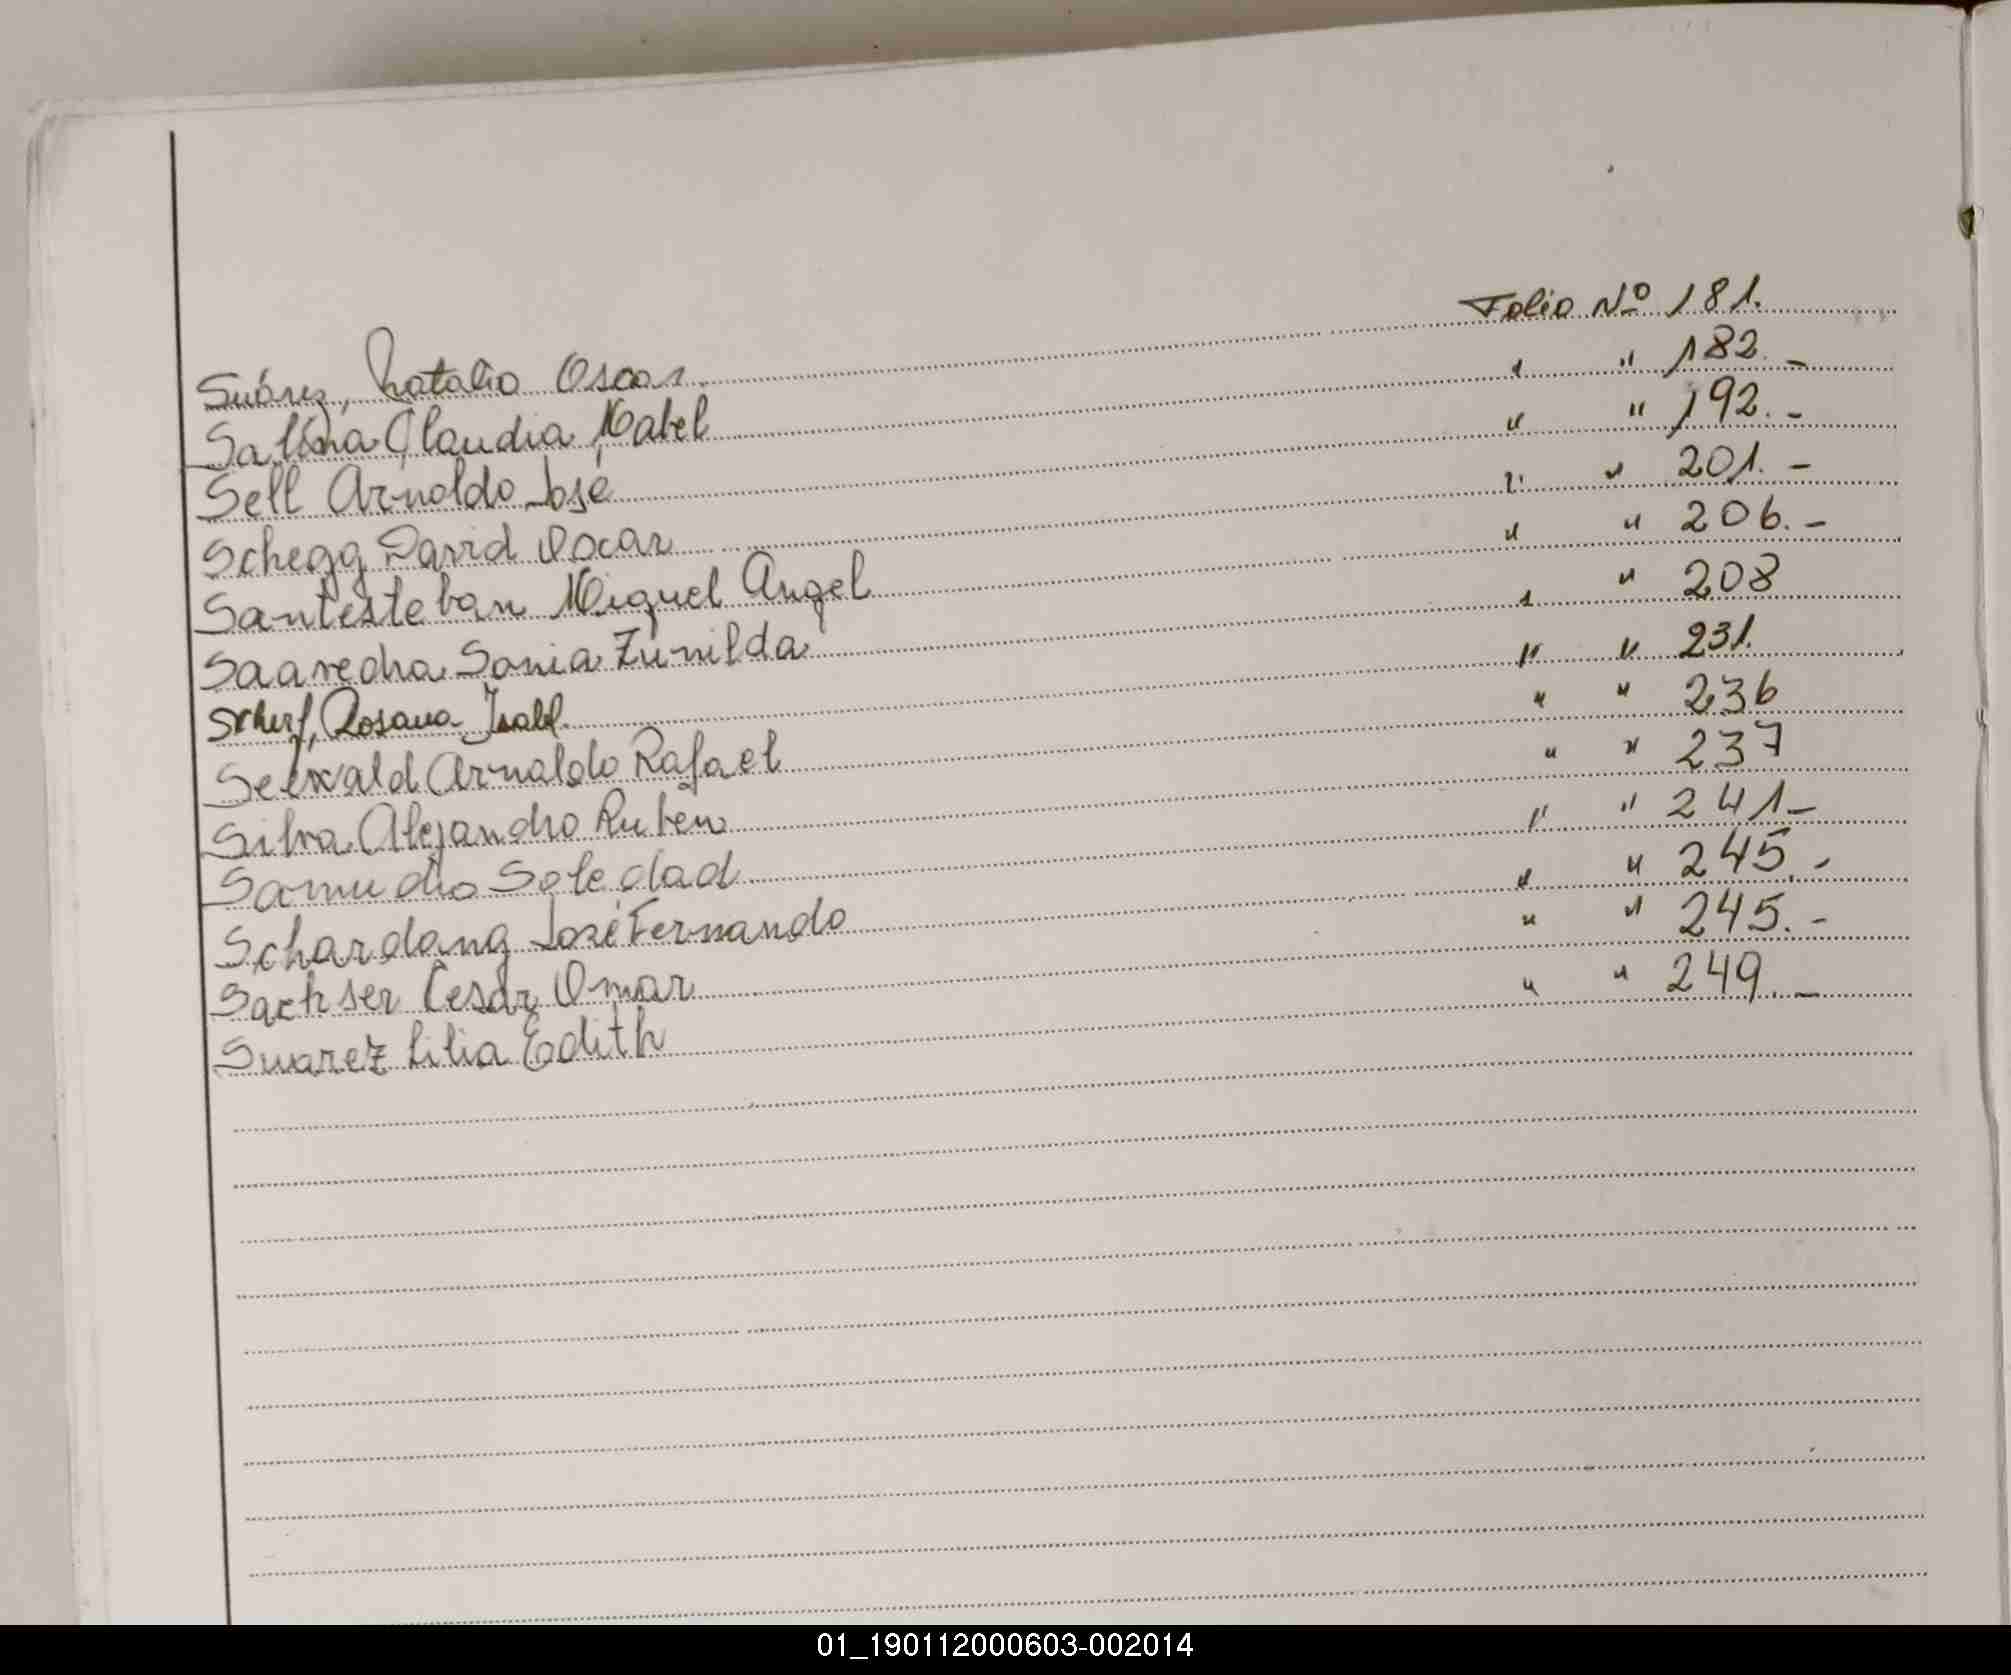 Suárez, Natalio Oscar. Folio Nº 181.
Salina Claudia Mabel " " 182. -
Sell Arnoldo José " " 192. -
Schegg David Oscar " " 201. -
Santesteban Miguel Angel " " 206. -
Saavedra Sonia Zunilda " " 208
Scherf, Rosana Isabel. " " 231.
Seewald Arnaldo Rafael " " 236
Silva Alejandro Ruben " " 237
Samudio Soledad " " 241 -
Schardong José Fernando " " 245. -
Sachser Cesar Omar " " 245. -
Suarez Lilia Edith " " 249. -
01_190112000603-002014